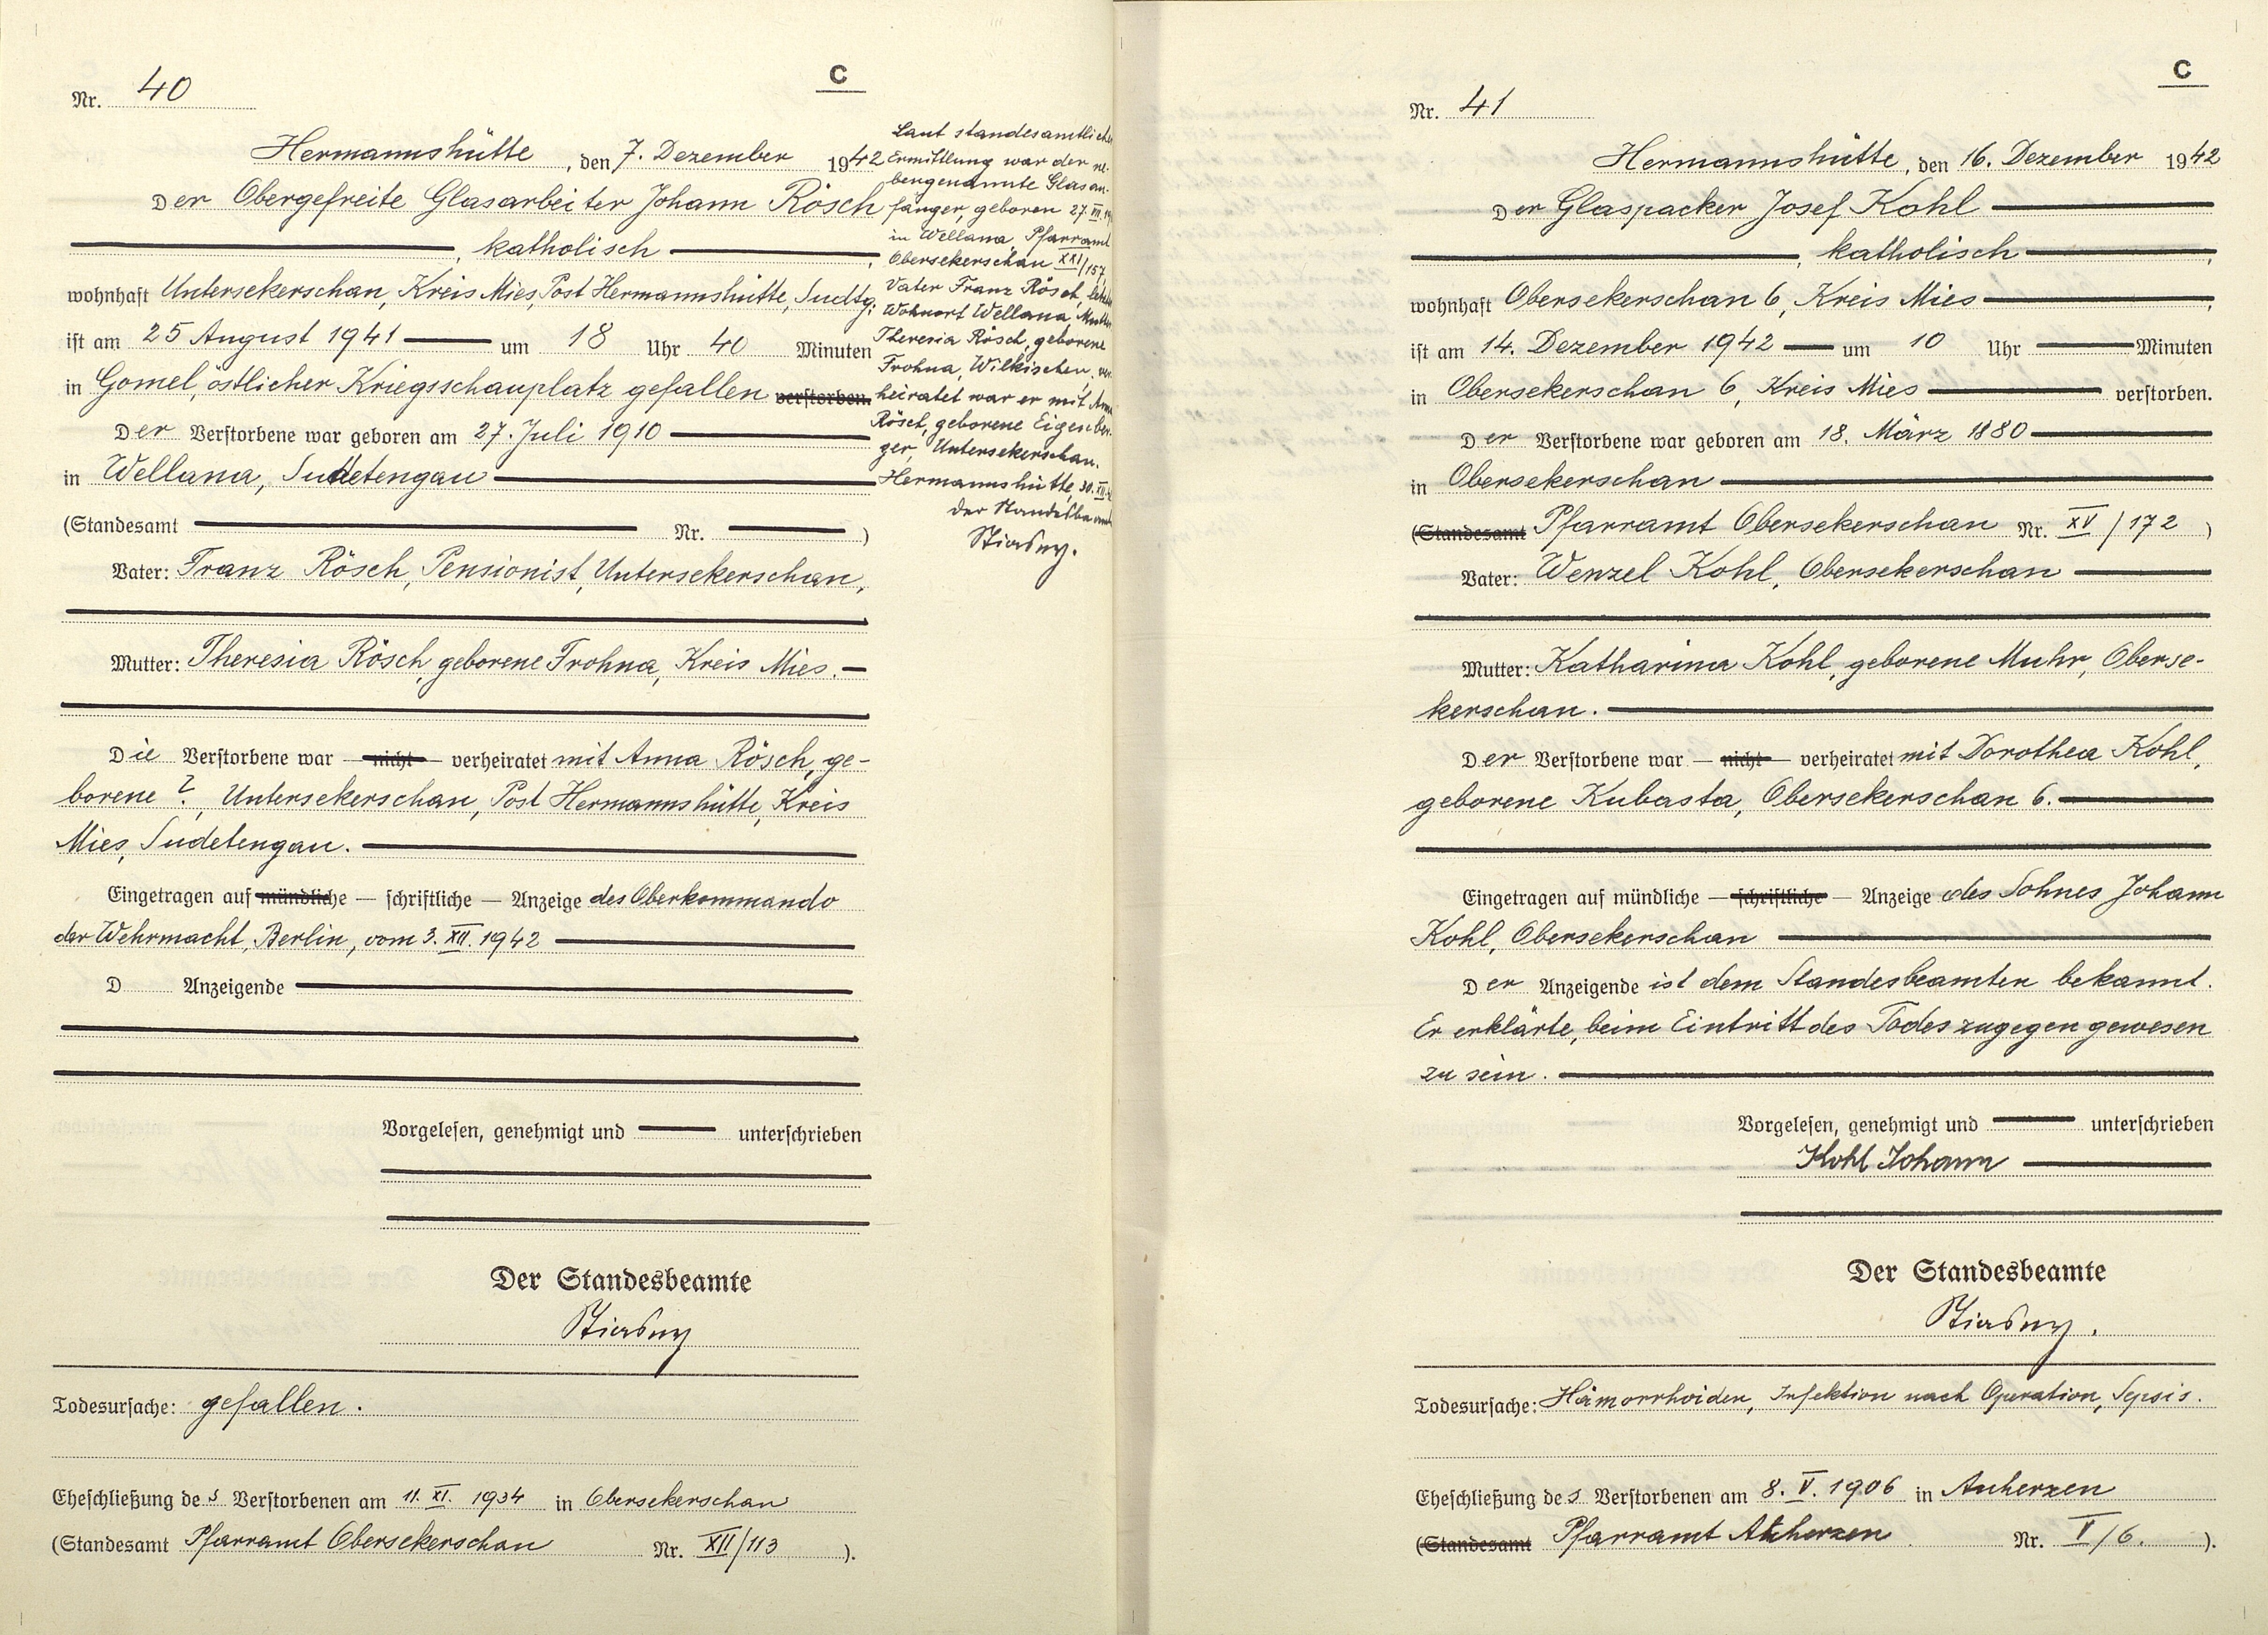 C
Nr. 40
Hermannshütte, den 7. Dezember 1942
Der Obergefreite Glasarbeiter Johann Rösch
, katholisch ,
wohnhaft Untersekerschan, Kreis Mies, Post Hermannshütte, Sudtg.
ist am 25 August 1941 um 18 Uhr 40 Minuten
in Gomel, östlicher Kriegsschauplatz gefallen verstorben.
Der Verstorbene war geboren am 27. Juli 1910
in Wellana, Sudetengau
(Standesamt Nr. )
Vater: Franz Rösch, Pensionist, Untersekerschan,
Mutter: Theresia Rösch, geborene Frohna, Kreis Mies.
Die Verstorbene war — nicht — verheiratet mit Anna Rösch, ge-
borene ?, Untersekerschan, Post Hermannshütte, Kreis
Mies, Sudetengau.
Eingetragen auf mündliche — schriftliche — Anzeige des Oberkommando
der Wehrmacht, Berlin, vom 3. XII. 1942
D Anzeigende
Vorgelesen, genehmigt und unterschrieben
Der Standesbeamte
Stiasny
Todesursache: gefallen.
Eheschließung des Verstorbenen am 11. XI. 1934 in Obersekerschan
(Standesamt Pfarramt Obersekerschan Nr. XII/113 ).
Laut standesamtlicher
Ermittlung war der ne-
bengenannte Glasan-
fänger, geboren 27. III.
in Wellana, Pfarramt
Obersekerschan XXI/157
Vater Franz Rösch,
Wohnort Wellana, Mutter
Theresia Rösch, geborene
Frohna, Wilkischen, ver-
heiratet war er mit Anna
Rösch, geborene Eigenber-
ger, Untersekerschan.
Hermannshütte, 30. XII.
der Standesbeamte
Stiasny.
C
Nr. 41
Hermannshütte, den 16. Dezember 1942
Der Glaspacker Josef Kohl
, katholisch ,
wohnhaft Obersekerschan 6, Kreis Mies ,
ist am 14. Dezember 1942 um 10 Uhr Minuten
in Obersekerschan 6, Kreis Mies verstorben.
Der Verstorbene war geboren am 18. März 1880
in Obersekerschan
(Standesamt Pfarramt Obersekerschan Nr. XV/172 )
Vater: Wenzel Kohl, Obersekerschan
Mutter: Katharina Kohl, geborene Muhr, Oberse-
kerschan.
Der Verstorbene war — nicht — verheiratet mit Dorothea Kohl,
geborene Kubasta, Obersekerschan 6.
Eingetragen auf mündliche — schriftliche — Anzeige des Sohnes Johann
Kohl, Obersekerschan
Der Anzeigende ist dem Standesbeamten bekannt.
Er erklärte, beim Eintritt des Todes zugegen gewesen
zu sein.
Vorgelesen, genehmigt und unterschrieben
Kohl Johann
Der Standesbeamte
Stiasny.
Todesursache: Hämorrhoiden, Infektion nach Operation, Sepsis.
Eheschließung des Verstorbenen am 8. V. 1906 in Auherzen
(Standesamt Pfarramt Auherzen Nr. V/6. ).